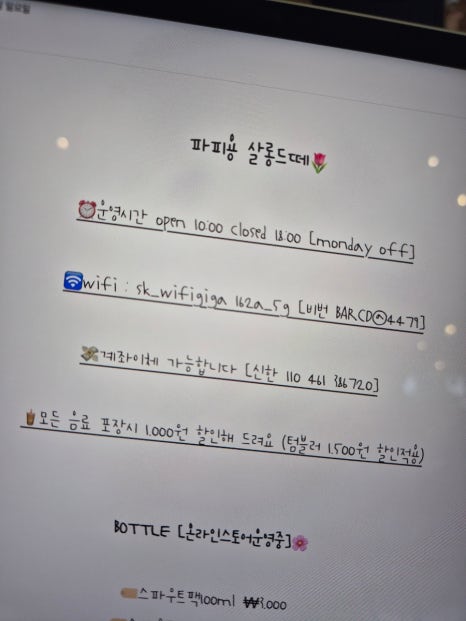 일요일
파피용 살롱드떼🌷
⏰운영시간 open 10:00 closed 18:00 [monday off]
wifi : sk_wifigiga 162a_5g [비번 BAR,CD㉧4479]
💸계좌이체 가능합니다 [신한 110 461 386720]
🧋모든 음료 포장시 1.000원 할인해 드려요 (텀블러 1.500원 할인적용)
BOTTLE [온라인스토어운영중]🌸
스파우트팩100ml ₩3.000